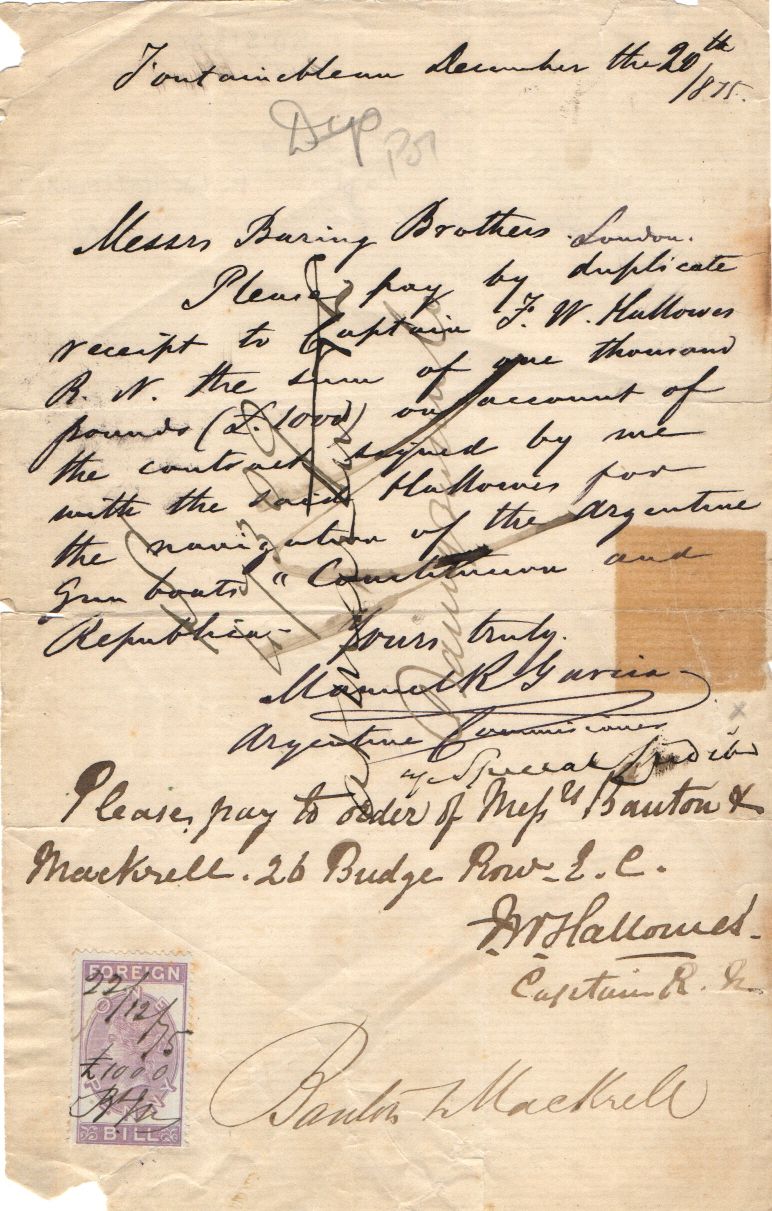 Fontainebleau December the 20th
/875.
Dup
Messrs Baring Brothers. London.
Please pay by duplicate
receipt to Captain F. W. Hallowes
R. N. the sum of one thousand
pounds (£. 1000) on account of
the contract signed by me
with the said Hallowes for
the navigation of the Argentine
Gun boats "Constitucion and
Republica- Yours truly.
Manuel R Garcia
Argentine Commissioner
Special Credit
Please, pay to order of Messrs Banton &
Mackrell. 26 Budge Row. E. C.
F W Hallowes.
Captain R. N.
FOREIGN
ONE
22/12/75
£1000
BILL
Banton & Mackrell